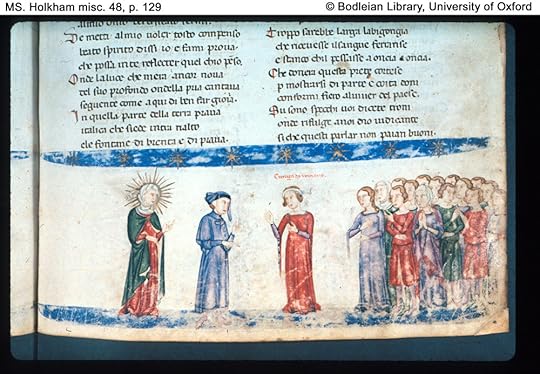 MS. Holkham misc. 48, p. 129
© Bodleian Library, University of Oxford
De metti almio voler tosto compenso
beato spirito dissi io e fami prova
che possa inte reflecter quel chio penso.
Onde laluce che mera ancor nova
del suo profondo ondella pria cantava
seguente come aqui di ben far gioia.
In quella parte della terra prava
italica che siede intra rialto
ele fontane di brenta e di piava.
Troppo sarebbe larga labigongia
che riceuesse ilsangue ferrarese
e stanco chil pesasse aoncia aoncia.
Che donera questo prete cortese
p mostrarsi di parte e cotai doni
conformi fieno aluiuer del paese.
Su sono specchi uoi dicete troni
onde rifulge anoi dio iudicante
si che questi parlar non paian buoni.